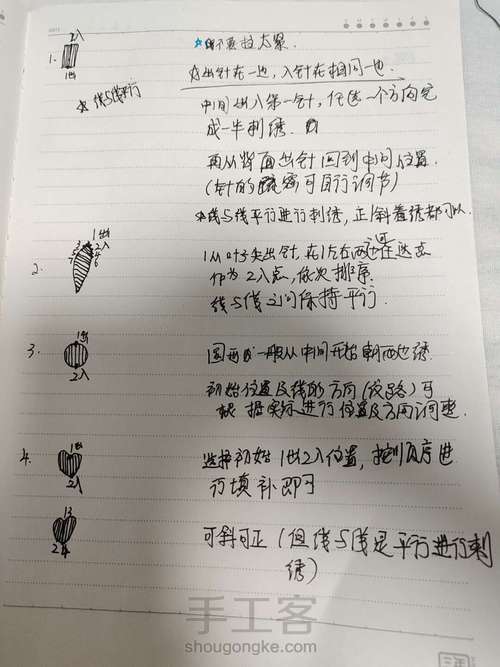 2入
1.
1出
☆线不要拉太紧.
☆线与线平行
为出针在一边,入针在相同一边.
中间出入第一针,任选一个方向完
成一半刺绣.
再从背面出针回到中间位置.
(针的疏密可自行调节)
☆线与线平行进行刺绣,正/斜着绣都可以.
1出
2入
2.
1从叶子尖出针,在1左右两边
作为2入点,依次排序.
线与线之间保持平行.
3.
1出
2入
圆形一般从中间开始朝两边绣.
初始位置及线的方向(纹路)可
根据实际进行位置及方向调整.
4.
1出
2入
选择初始1出2入位置,按顺序进
行填补即可
13
24
可斜可正(但线与线是平行进行刺
绣)
手工客
shougongke.com